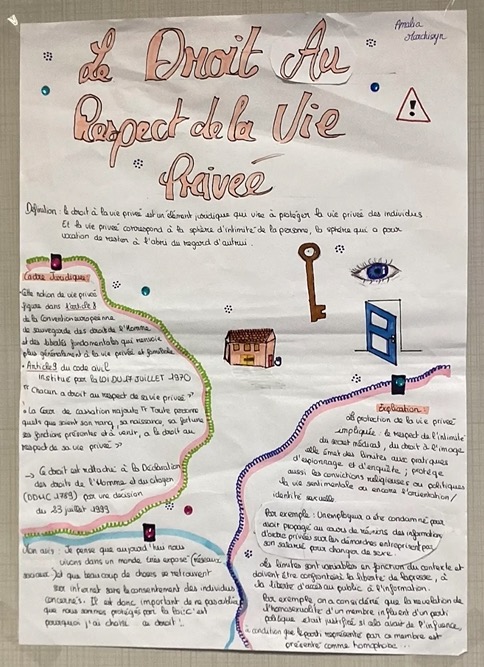 Amalia
Le Droit Au
Respect de la Vie
Privée
Définition : le droit à la vie privée est un élément juridique qui vise à protéger la vie privée des individus
Et la vie privée correspond à la sphère d'intimité de la personne, la sphère qui a pour
vocation de rester à l'abri du regard d'autrui.
Cadre Juridique :
Cette notion de vie privée
figure dans l'article 8
de la Convention européenne
de sauvegarde des droits de l'Homme
et des libertés fondamentales qui renvoie
plus généralement à la vie privée et familiale
• Article 9 du code civil
institué par la LOI DU 17 JUILLET 1970
"Chacun a droit au respect de sa vie privée"
• La Cour de cassation rajoute "Toute personne
quels que soient son rang, sa naissance, sa fortune
ses fonctions présentes et à venir, a le droit au
respect de sa vie privée >>
→ Ce droit est rattaché à la Déclaration
des droits de l'Homme et du citoyen
(DDHC 1789) par une décision
du 23 juillet 1999
Mon avis : Je pense que aujourd'hui nous
vivons dans un monde très exposé (Réseaux
sociaux..) et que beaucoup de choses se retrouvent
sur internet sans le consentement des individus
concernés. Il est donc important de
que nous sommes protégés par la loi c'est
pourquoi j'ai choisi ce droit !
Explication :
La protection de la vie privée
implique : le respect de l'intimité
du secret médical, du droit à l'image
elle émet des limites aux pratiques
d'espionnage et d'enquête, protège
aussi les convictions religieuses ou politiques
la vie sentimentale ou encore l'orientation/
identité sexuelle
Par exemple : Un employeur a été condamné pour
avoir propagé au cours de réunions des informations
d'ordre privées sur les démarches entreprises par
son salarié pour changer de sexe.
Les limites sont variables en fonction du contexte et
doivent être confrontées la liberté de la presse, à
la liberté d'accès au public à l'information.
Par exemple on a considéré que la révélation de
l'homosexualité d'un membre influent d'un parti
politique était justifié si elle avait de l'influence,
à condition que le parti représenté par ce membre est
présenté comme homophobe...